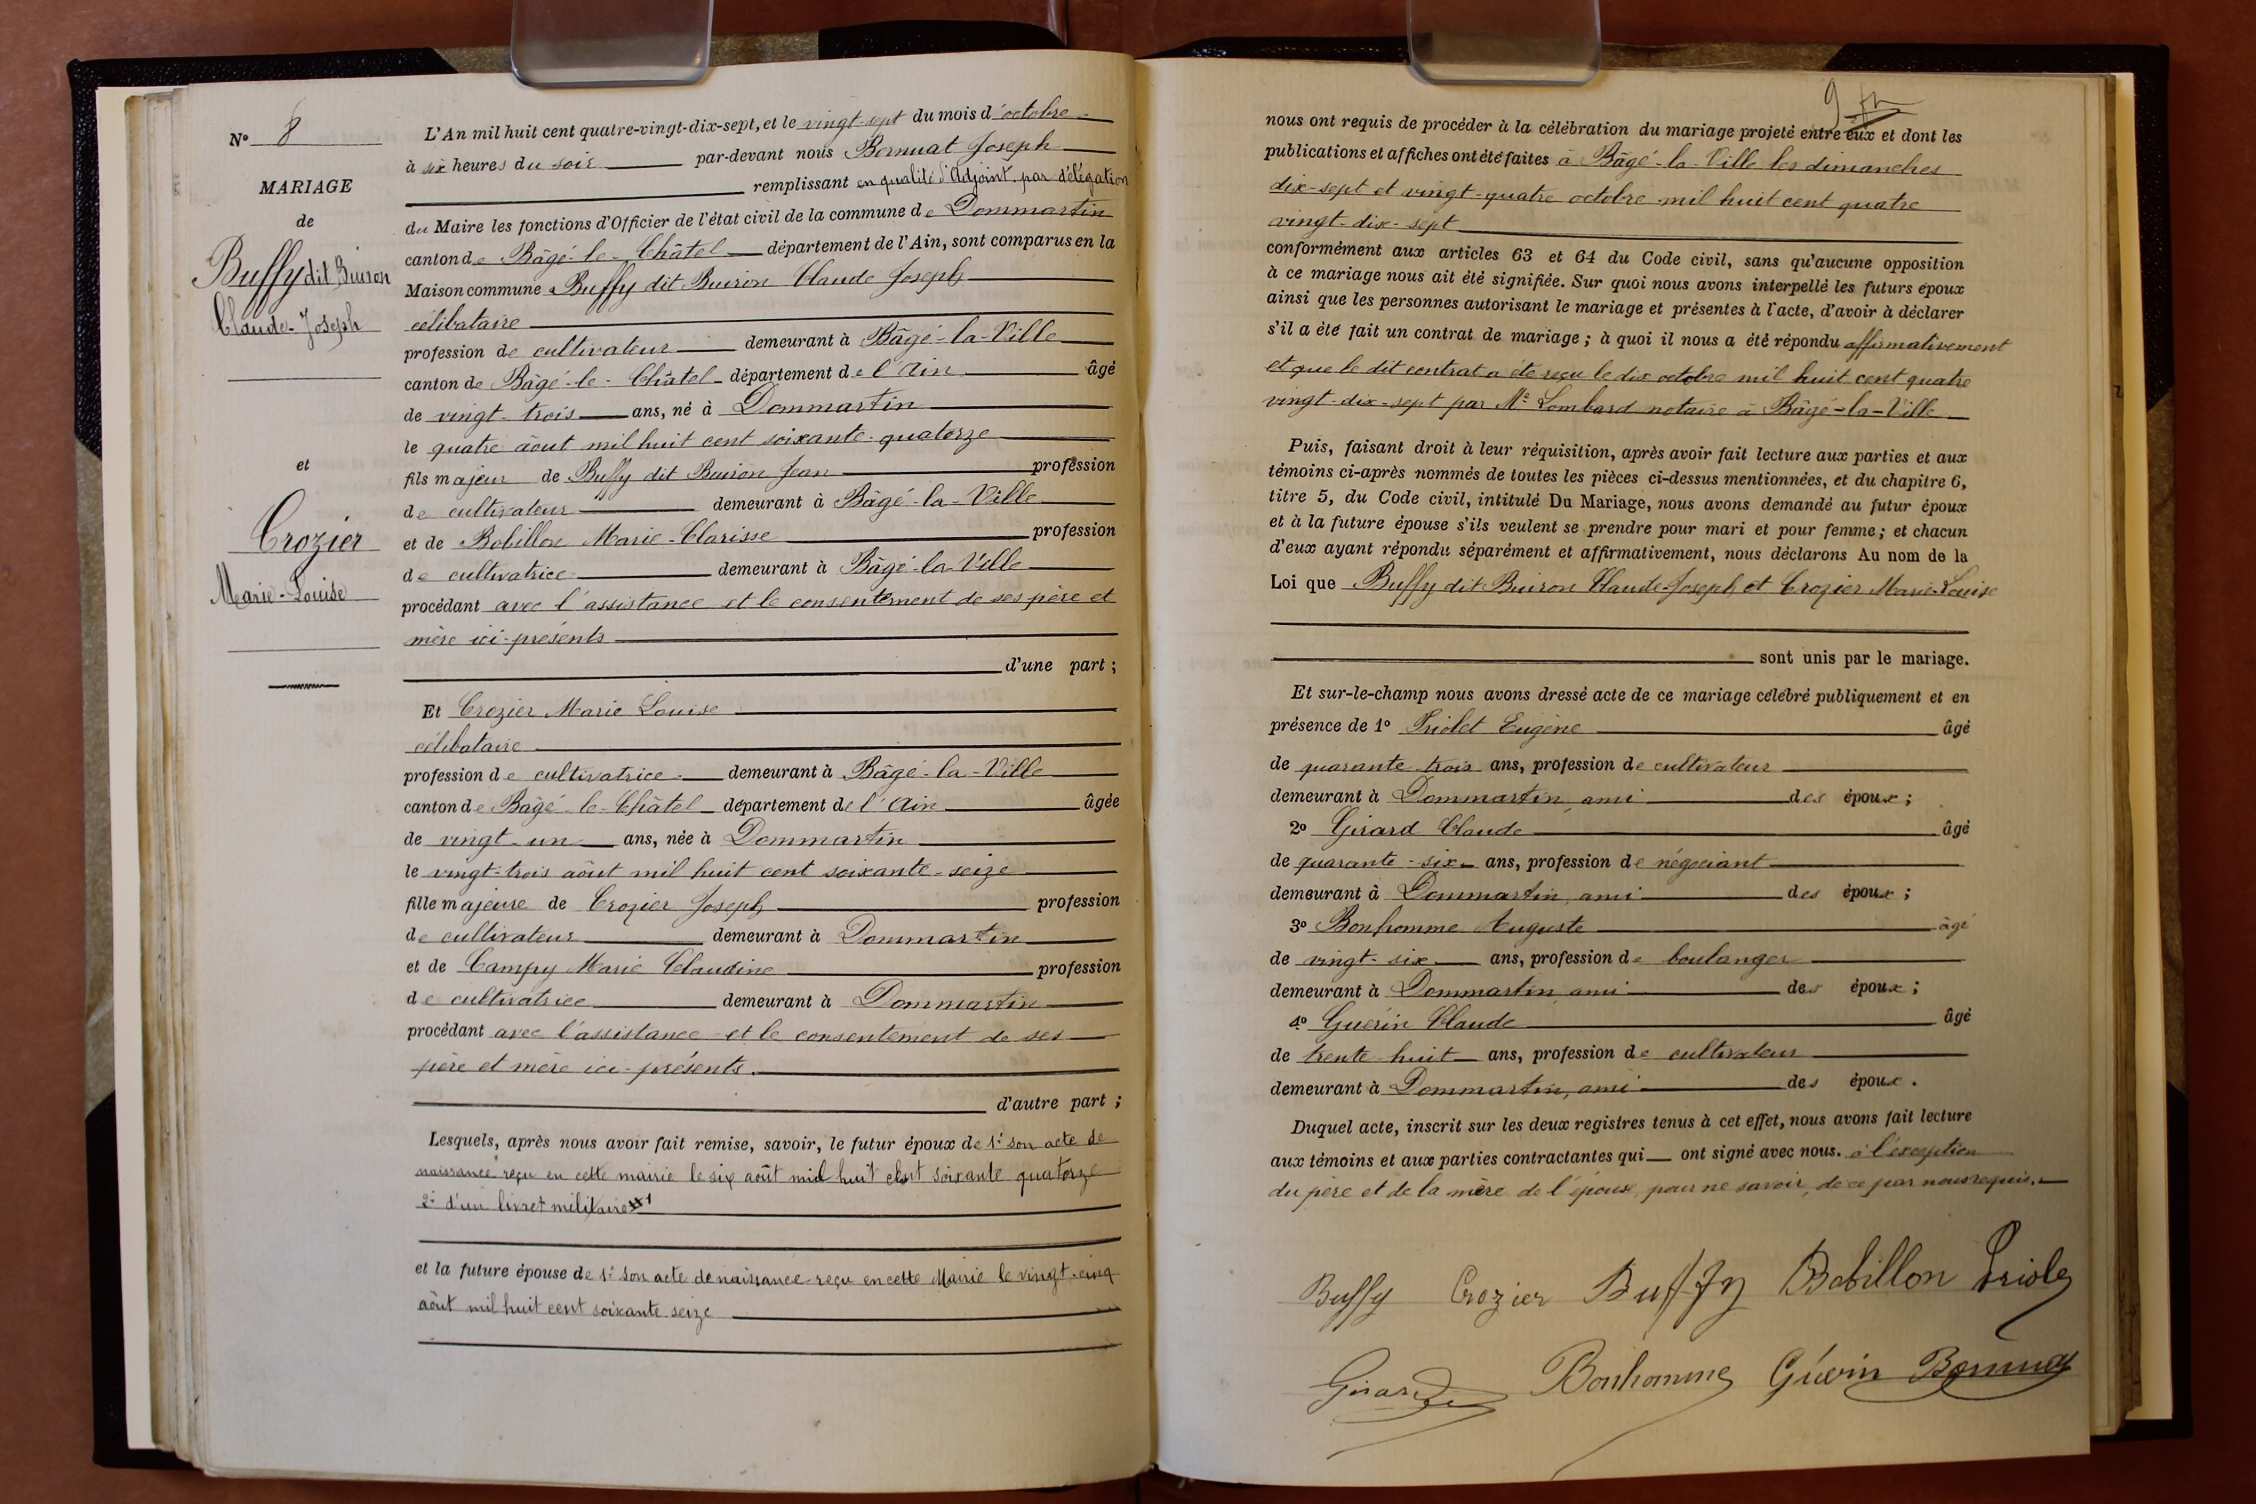 N° 8
MARIAGE
de
Buffy dit Buiron
Claude-Joseph
et
Crozier
Marie-Louise
L'An mil huit cent quatre-vingt-dix-sept, et le vingt-sept du mois d'octobre
à six heures du soir par-devant nous Bornuat Joseph
remplissant en qualité d'Adjoint par délégation
du Maire les fonctions d'Officier de l'état civil de la commune de Dommartin
canton de Bâgé-le-Châtel département de l'Ain, sont comparus en la
Maison commune Buffy dit Buiron Claude Joseph
célibataire
profession de cultivateur demeurant à Bâgé-la-Ville
canton de Bâgé-le-Châtel département de l'Ain âgé
de vingt-trois ans, né à Dommartin
le quatre âout mil huit cent soixante-quatorze
fils majeur de Buffy dit Buiron Jean profession
de cultivateur demeurant à Bâgé-la-Ville
et de Bobillon Marie-Clarisse profession
de cultivatrice demeurant à Bâgé-la-Ville
procédant avec l'assistance et le consentement de ses père et
mère ici-présents
d'une part ;
Et Crozier Marie Louise
célibataire
profession de cultivatrice demeurant à Bâgé-la-Ville
canton de Bâgé-le-Châtel département de l'Ain âgée
de vingt-un ans, née à Dommartin
le vingt-trois aôut mil huit cent soixante-seize
fille majeure de Crozier Joseph profession
de cultivateur demeurant à Dommartin
et de Campy Marie Claudine profession
de cultivatrice demeurant à Dommartin
procédant avec l'assistance et le consentement de ses
père et mère ici-présents.
d'autre part ;
Lesquels, après nous avoir fait remise, savoir, le futur époux de 1° son acte de
naissance reçu en cette mairie le six août mil huit cent soixante quatorze
2° d'un livret militaire
et la future épouse de 1° son acte de naissance reçu en cette Mairie le vingt-cinq
aôut mil huit cent soixante seize
9
nous ont requis de procéder à la célébration du mariage projeté entre eux et dont les
publications et affiches ont été faites à Bâgé-la-Ville les dimanches
dix-sept et vingt-quatre octobre mil huit cent quatre
vingt-dix-sept
conformément aux articles 63 et 64 du Code civil, sans qu'aucune opposition
à ce mariage nous ait été signifiée. Sur quoi nous avons interpellé les futurs époux
ainsi que les personnes autorisant le mariage et présentes à l'acte, d'avoir à déclarer
s'il a été fait un contrat de mariage ; à quoi il nous a été répondu affirmativement
et que le dit contrat a été reçu le dix octobre mil huit cent quatre
vingt-dix-sept par Me Lombard notaire à Bâgé-la-Ville
Puis, faisant droit à leur réquisition, après avoir fait lecture aux parties et aux
témoins ci-après nommés de toutes les pièces ci-dessus mentionnées, et du chapitre 6,
titre 5, du Code civil, intitulé Du Mariage, nous avons demandé au futur époux
et à la future épouse s'ils veulent se prendre pour mari et pour femme ; et chacun
d'eux ayant répondu séparément et affirmativement, nous déclarons Au nom de la
Loi que Buffy dit Buiron Claude-Joseph et Crozier Marie-Louise
sont unis par le mariage.
Et sur-le-champ nous avons dressé acte de ce mariage célébré publiquement et en
présence de 1° Priolet Eugène âgé
de quarante-trois ans, profession de cultivateur
demeurant à Dommartin, ami des époux ;
2° Girard Claude âgé
de quarante-six ans, profession de négociant
demeurant à Dommartin, ami des époux ;
3° Bonhomme Auguste âgé
de vingt-six ans, profession de boulanger
demeurant à Dommartin, ami des époux ;
4° Guérin Claude âgé
de trente-huit ans, profession de cultivateur
demeurant à Dommartin, ami des époux.
Duquel acte, inscrit sur les deux registres tenus à cet effet, nous avons fait lecture
aux témoins et aux parties contractantes qui ont signé avec nous. à l'exception
du père et de la mère de l'épouse, pour ne savoir, de ce par nous requis.
Buffy Crozier Buffy Bobillon Priolet
Girard Bonhomme Guérin Bornuat